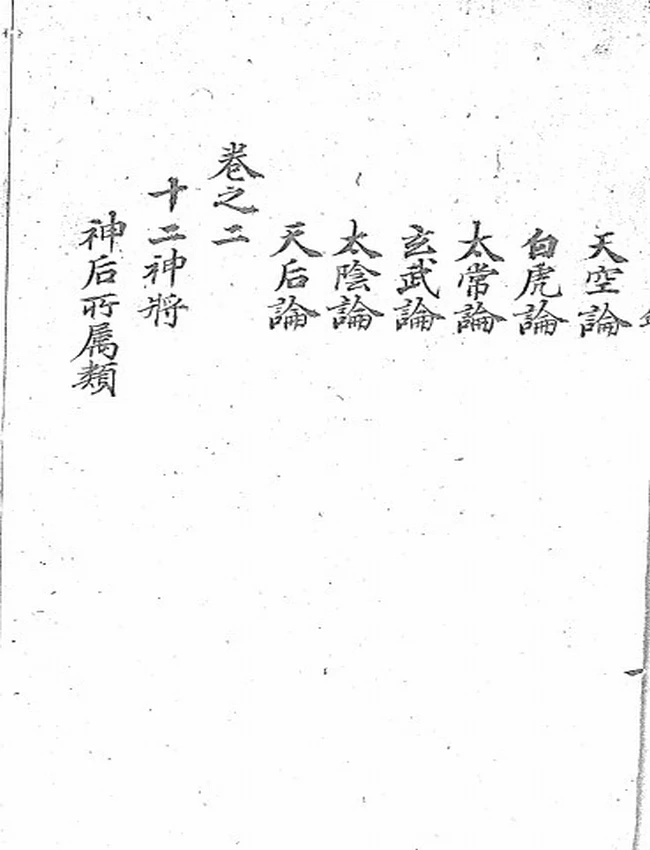 天空論
白虎論
太常論
玄武論
太陰論
天后論
卷之二
十二神將
神后所属類